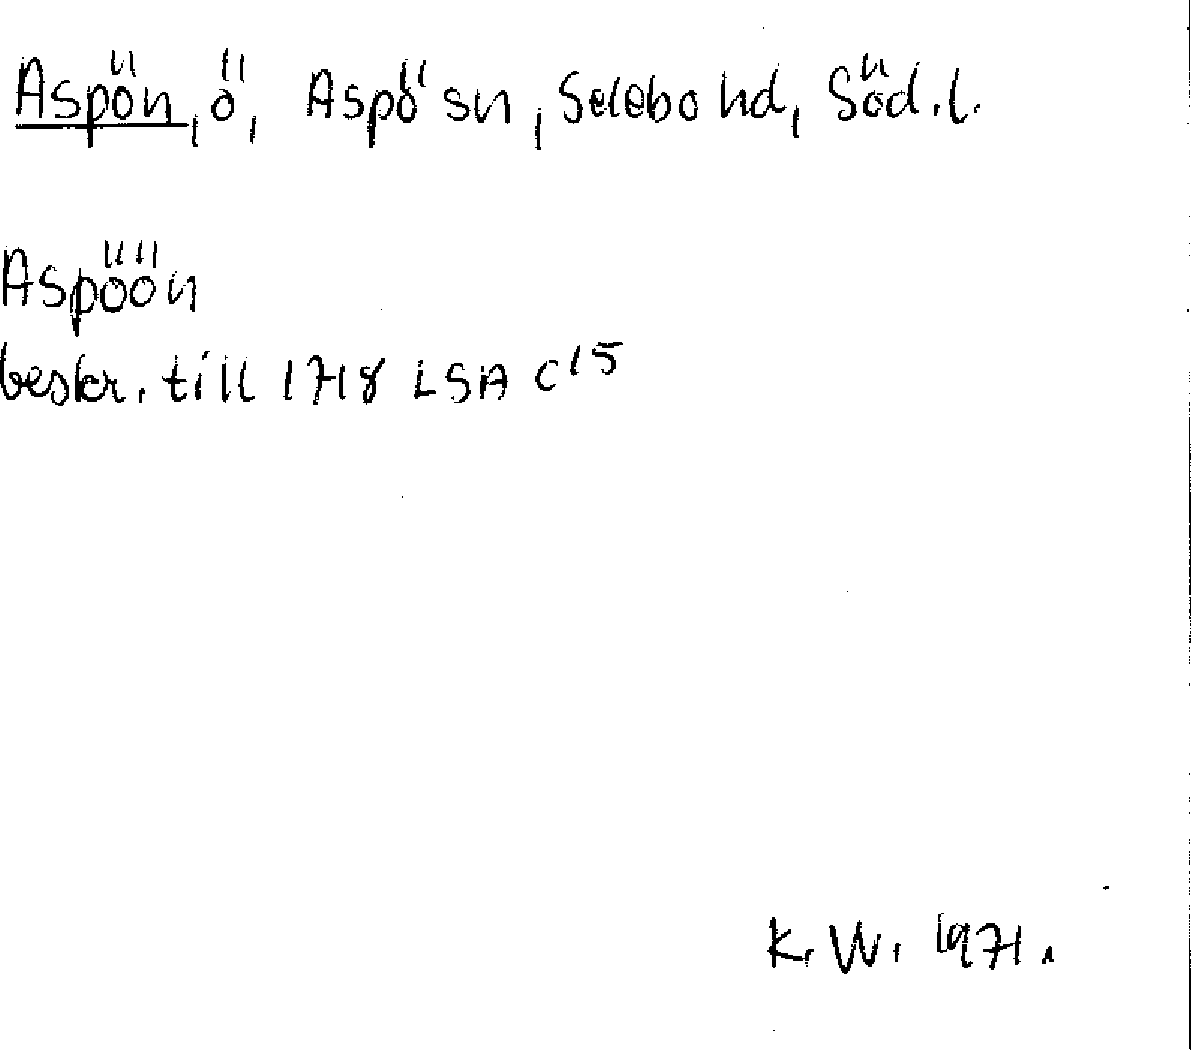 Aspön, ö, Aspö sn, Selebo hd, Söd.l.
Aspöön
beskr. till 1718 LSA C15
K.W. 1971.